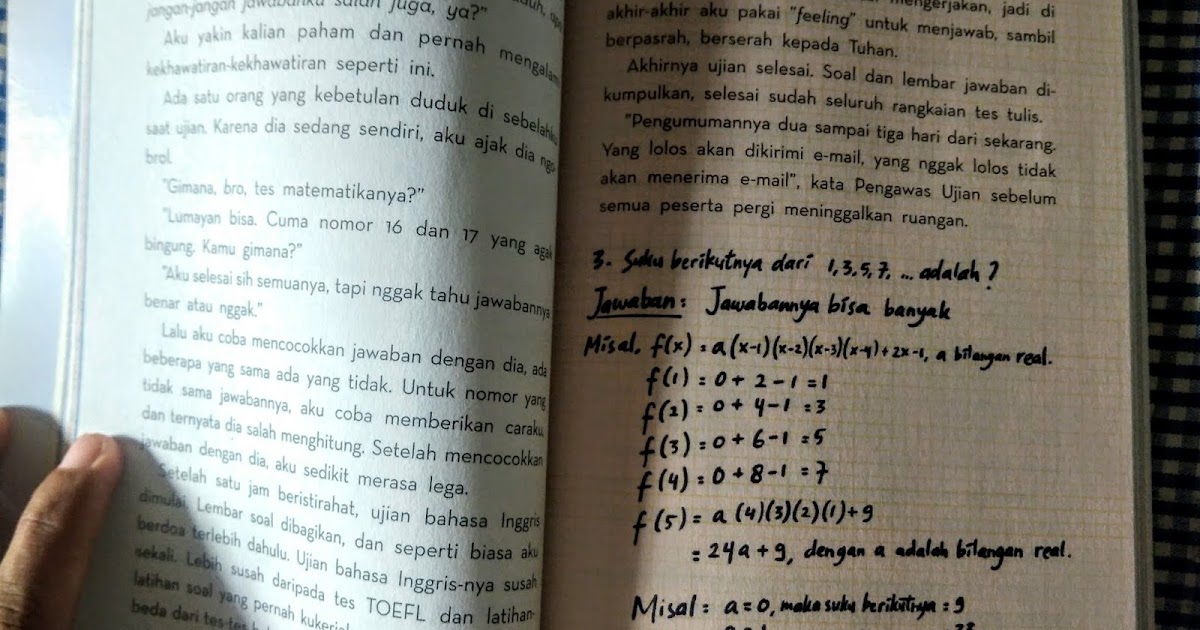 jangan-jangan jawabanku salah juga, ya?"
Aku yakin kalian paham dan pernah mengalami
kekhawatiran-kekhawatiran seperti ini.
Ada satu orang yang kebetulan duduk di sebelahku
saat ujian. Karena dia sedang sendiri, aku ajak dia ngo-
brol.
"Gimana, bro, tes matematikanya?"
"Lumayan bisa. Cuma nomor 16 dan 17 yang agak
bingung. Kamu gimana?"
"Aku selesai sih semuanya, tapi nggak tahu jawabannya
benar atau nggak."
Lalu aku coba mencocokkan jawaban dengan dia, ada
beberapa yang sama ada yang tidak. Untuk nomor yang
tidak sama jawabannya, aku coba memberikan caraku,
dan ternyata dia salah menghitung. Setelah mencocokkan
jawaban dengan dia, aku sedikit merasa lega.
Setelah satu jam beristirahat, ujian bahasa Inggris
dimulai. Lembar soal dibagikan, dan seperti biasa aku
berdoa terlebih dahulu. Ujian bahasa Inggris-nya susah
sekali. Lebih susah daripada tes TOEFL dan latihan-
latihan soal yang pernah kukerjakan
beda dari tes-tes
mengerjakan, jadi di
akhir-akhir aku pakai "feeling" untuk menjawab, sambil
berpasrah, berserah kepada Tuhan.
Akhirnya ujian selesai. Soal dan lembar jawaban di-
kumpulkan, selesai sudah seluruh rangkaian tes tulis.
"Pengumumannya dua sampai tiga hari dari sekarang.
Yang lolos akan dikirimi e-mail, yang nggak lolos tidak
akan menerima e-mail", kata Pengawas Ujian sebelum
semua peserta pergi meninggalkan ruangan.
3. Suku berikutnya dari 1,3,5,7, ... adalah?
Jawaban: Jawabannya bisa banyak
Misal, f(x) = a(x-1)(x-2)(x-3)(x-4)+2x-1, a bilangan real.
f(1) = 0+2-1 = 1
f(2) = 0+4-1 = 3
f(3) = 0+6-1 = 5
f(4) = 0+8-1 = 7
f(5) = a(4)(3)(2)(1)+9
= 24a+9, dengan a adalah bilangan real.
Misal: a=0, maka suku berikutnya = 9